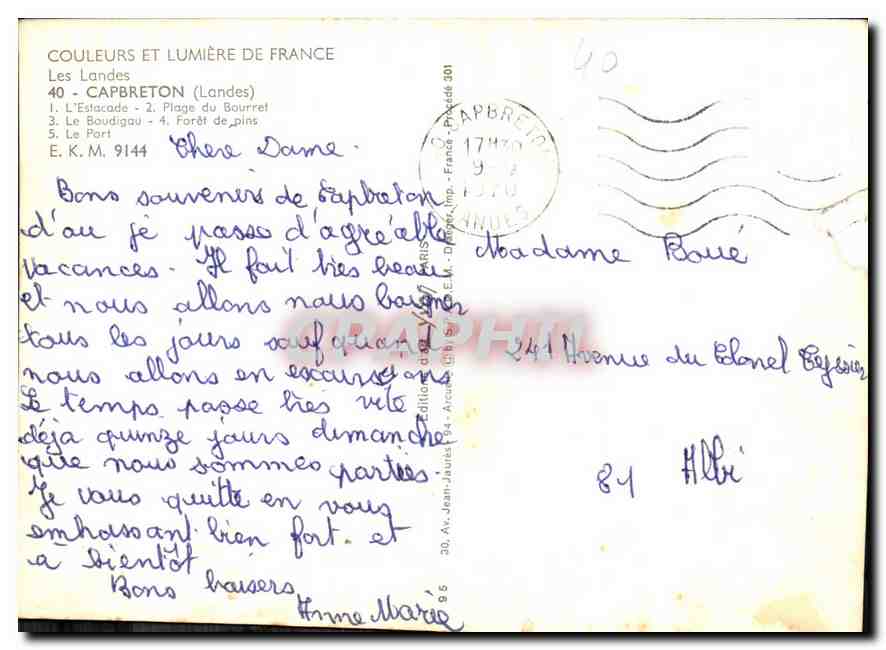 COULEURS ET LUMIÈRE DE FRANCE
Les Landes
40 - CAPBRETON (Landes)
1. L'Estacade - 2. Plage du Bourret
3. Le Boudigau - 4. Forêt de pins
5. Le Port
E. K. M. 9144
Chere Dame.
Bons souvenirs de Capbreton
d'au je passe d'agréable
vacances. Il fait très beau
et nous allons nous baigner
tous les jours sauf quand
nous allons en excursions
Le temps passe très vite
déjà quinze jours dimanche
que nous sommes parties.
Je vous quitte en vous
embrassant bien fort. et
à bientôt
Bons baisers
Anne Marie
30, Av. Jean-Jaurès - 94 - Arcueil
Imp. - France - Procédé 301
95
40
CAPBRETON
17H30
1970
LANDES
Madame Boué
241 Avenue du Colonel Teyssier
81 Albi